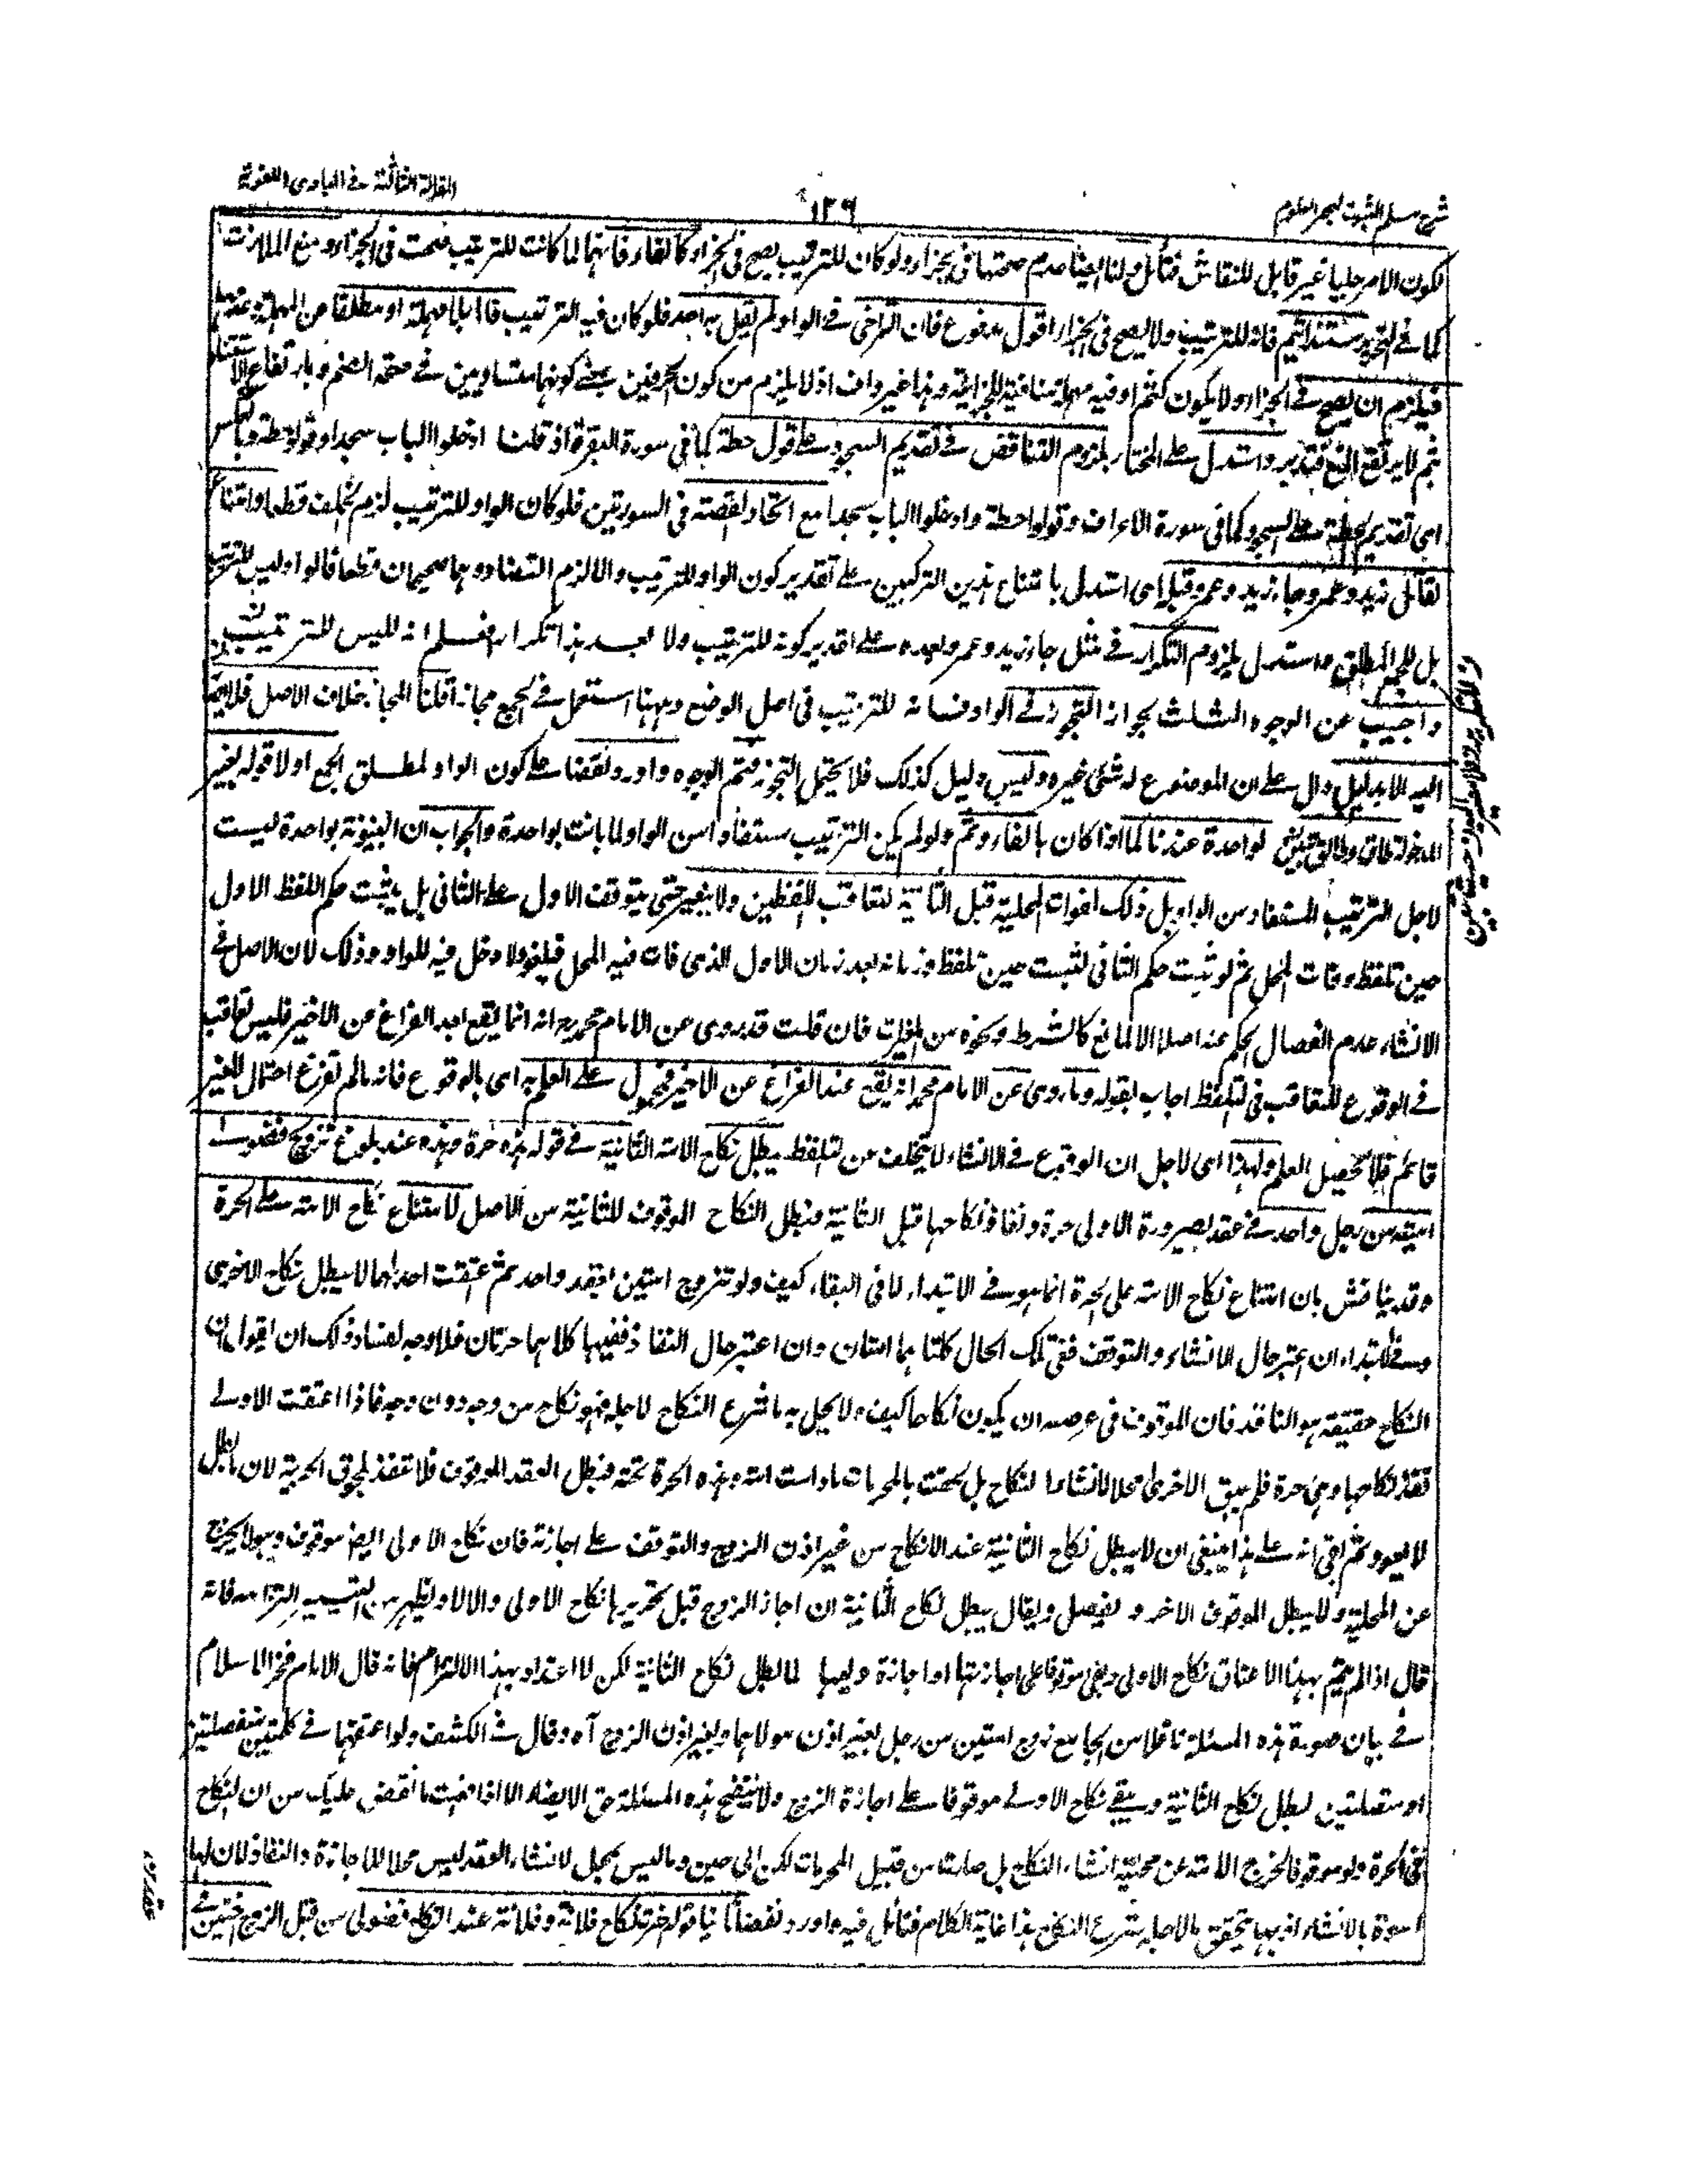 شرح مسلم الثبوت لبحر العلوم
١٢٩
المقالة الثالثة في المبادى اللغوية
لكون الامر جليا غير قابل للنقاش فتأمل ولنا ايضا عدم صحتها فى الجزاء ولو كان للترتيب يصح فى الجزاء كالفاء فانها لما كانت للترتيب صحت فى الجزاء ومنع الملازمة
كما في التحرير مستندا بثم فانه للترتيب ولا يصح فى الجزاء اقول مدفوع فان التراخى في الواو لم يقل به احد فلو كان فيه الترتيب فاما بلا مهلة او مطلقا عن المهلة وعدمها
فيلزم ان يصح في الجزاء ولا يكون كثم او فيه مهلة منافية للجزائية وهذا غير واف اذ لا يلزم من كون الحرفين بمعنى كونهما متساويين في صحة الضم وبارتفاع الاستناد
بثم لا يرتفع المنع فتدبر واستدل على المختار بلزوم التناقض في تقديم السجود على قول حطة كما في سورة البقرة اذ قلنا ادخلوا الباب سجدا وقولوا حطة وبالعكس
اى تقديم حطة على السجود كما فى سورة الاعراف وقولوا حطة وادخلوا الباب سجدا مع اتحاد القصة فى السورتين فلو كان الواو للترتيب لزم تخلف قطعا وامتناع
تقاتل زيد وعمرو وجاء زيد وعمرو قبله اى استدل بامتناع هذين التركيبين على تقدير كون الواو للترتيب والا لزم التضاد وهما صحيحان قطعا فالواو ليس للترتيب
بل للجمع المطلق واستدل بلزوم التكرار في مثل جاء زيد وعمرو بعده على تقدير كونه للترتيب ولا يعد هذا تكرارا فعلم انه ليس للترتيب
واجيب عن الوجوه الثلث بجواز التجوز في الواو فانه للترتيب فى اصل الوضع وههنا استعمل في الجمع مجازا قلنا المجاز خلاف الاصل فلا يصار
اليه الا بدليل دال على ان الموضوع له شئ غيره وليس دليل كذلك فلا يحتمل التجوز فتم الوجوه واورد نقضا على كون الواو لمطلق الجمع اولا قوله لغير
المدخولة طالق وطالق تبين لواحدة عندنا كما اذا كان بالفاء وثم ولو لم يكن الترتيب مستفادا من الواو لما بانت بواحدة والجواب ان البينونة بواحدة ليست
لاجل الترتيب المستفاد من الواو بل ذلك لفوات المحلية قبل الثانية لتعاقب اللفظين ولا يتغير حتى يتوقف الاول على الثانى بل يثبت حكم اللفظ الاول
حين تلفظ وفات المحل ثم لو ثبت حكم الثانى لثبت حين تلفظ وزمانه بعد زمان الاول الذى فات فيه المحل فيلغو ولا دخل فيه للواو وذلك لان الاصل في
الانشاء عدم انفصال الحكم عنه اصلا الا لمانع كالشرط ونحوه من المغيرات فان قلت قد روى عن الامام محمد رح انه انما يقع بعد الفراغ من الاخير فليس تعاقب
في الوقوع للتعاقب فى التلفظ اجاب بقوله وما روى عن الامام محمد انه يقع عند الفراغ عن الاخير فمحمول على العلم به اى بالوقوع فانه مالم تفرغ احتمال المغير
قائم فلا تحصيل العلم ولهذا اى لاجل ان الوقوع في الانشاء لا يتخلف عن التلفظ يبطل نكاح الامة الثانية في قوله هذه حرة وهذه عند بلوغ تزويج فضولى
امتيه من رجل واحد في عقد لصيرورة الاولى حرة ونفاذ نكاحها قبل الثانية فبطل النكاح الموقوف للثانية من الاصل لامتناع نكاح الامة على الحرة
وقد يناقش بان امتناع نكاح الامة على الحرة انما هو في الابتداء لا فى البقاء كيف ولو تزوج امتين بعقد واحد ثم عتقت احداهما لا يبطل نكاح الاخرى
وفى الابتداء ان اعتبر حال الانشاء والتوقف ففى تلك الحال كلتاهما امتان وان اعتبر حال النفاذ ففيها كلاهما حرتان فلا وجه لفساد ولك ان تقول ان
النكاح حقيقة هو النافذ فان الموقوف فى عرصة ان يكون نكاحا كيف ولا يحل به ما شرع النكاح لاجله فهو نكاح من وجه دون وجه فاذا اعتقت الاولى
نفذ نكاحها وهى حرة فلم يبق الاخرى محلا لانشاء النكاح بل لحقت بالمحرمات مادامت امة وهذه الحرة تحته فبطل العقد الموقوف فلا تنفذ بلحوق الحرية لان ما بطل
لا يعود ثم بقى انه على هذا ينبغى ان لا يبطل نكاح الثانية عند الانكاح من غير اذن الزوج والتوقف على اجازته فان نكاح الاولى ايضا موقوف وهو لا يخرج
عن المحلية ولا يبطل الموقوف الآخر و يفصل ويقال يبطل نكاح الثانية ان اجاز الزوج قبل تحريرها نكاح الاولى والا لا ويظهر من التيسير التزامه فانه
قال اذا لم يتم بهذا الاعتاق نكاح الاولى وبقى موقوفا على اجازتها او اجازة وليها لما بطل نكاح الثانية لكن لا اعتداد بهذا الالتزام فانه قال الامام فخر الاسلام
في بيان صورة هذه المسئلة ناقلا من الجامع زوج امتين من رجل بغير اذن مولاهما وبغير اذن الزوج آه وقال في الكشف ولو اعتقهما في كلمتين منفصلتين
او متصلتين يبطل نكاح الثانية ويبقى نكاح الاولى موقوفا على اجازة الزوج ولا يتضح هذه المسئلة حق الايضاح الا اذا ما نقض عليك من ان نكاح
فى الحرة ولو موقوفا يخرج الامة عن محلية انشاء النكاح بل صارت من قبيل المحرمات لكن الى حين وما ليس بمحل لانشاء العقد ليس محلا للاجازة والنفاذ لان لها
اسوة بالانشاء اذ بها يتحقق ما لاجله شرع النكاح هذا غاية الكلام فتأمل فيه واورد نقضا ثانيا قوله اجزت نكاح فلانة وفلانة عند انكاح فضولى من قبل الزوج اختين في